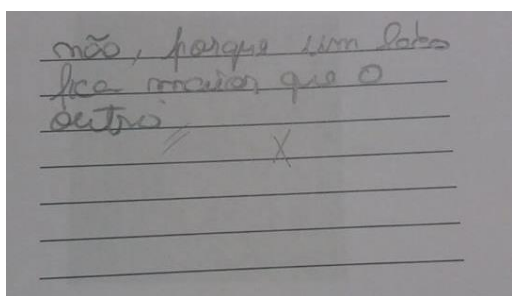 não, porque um lado
fica maior que o
outro
X